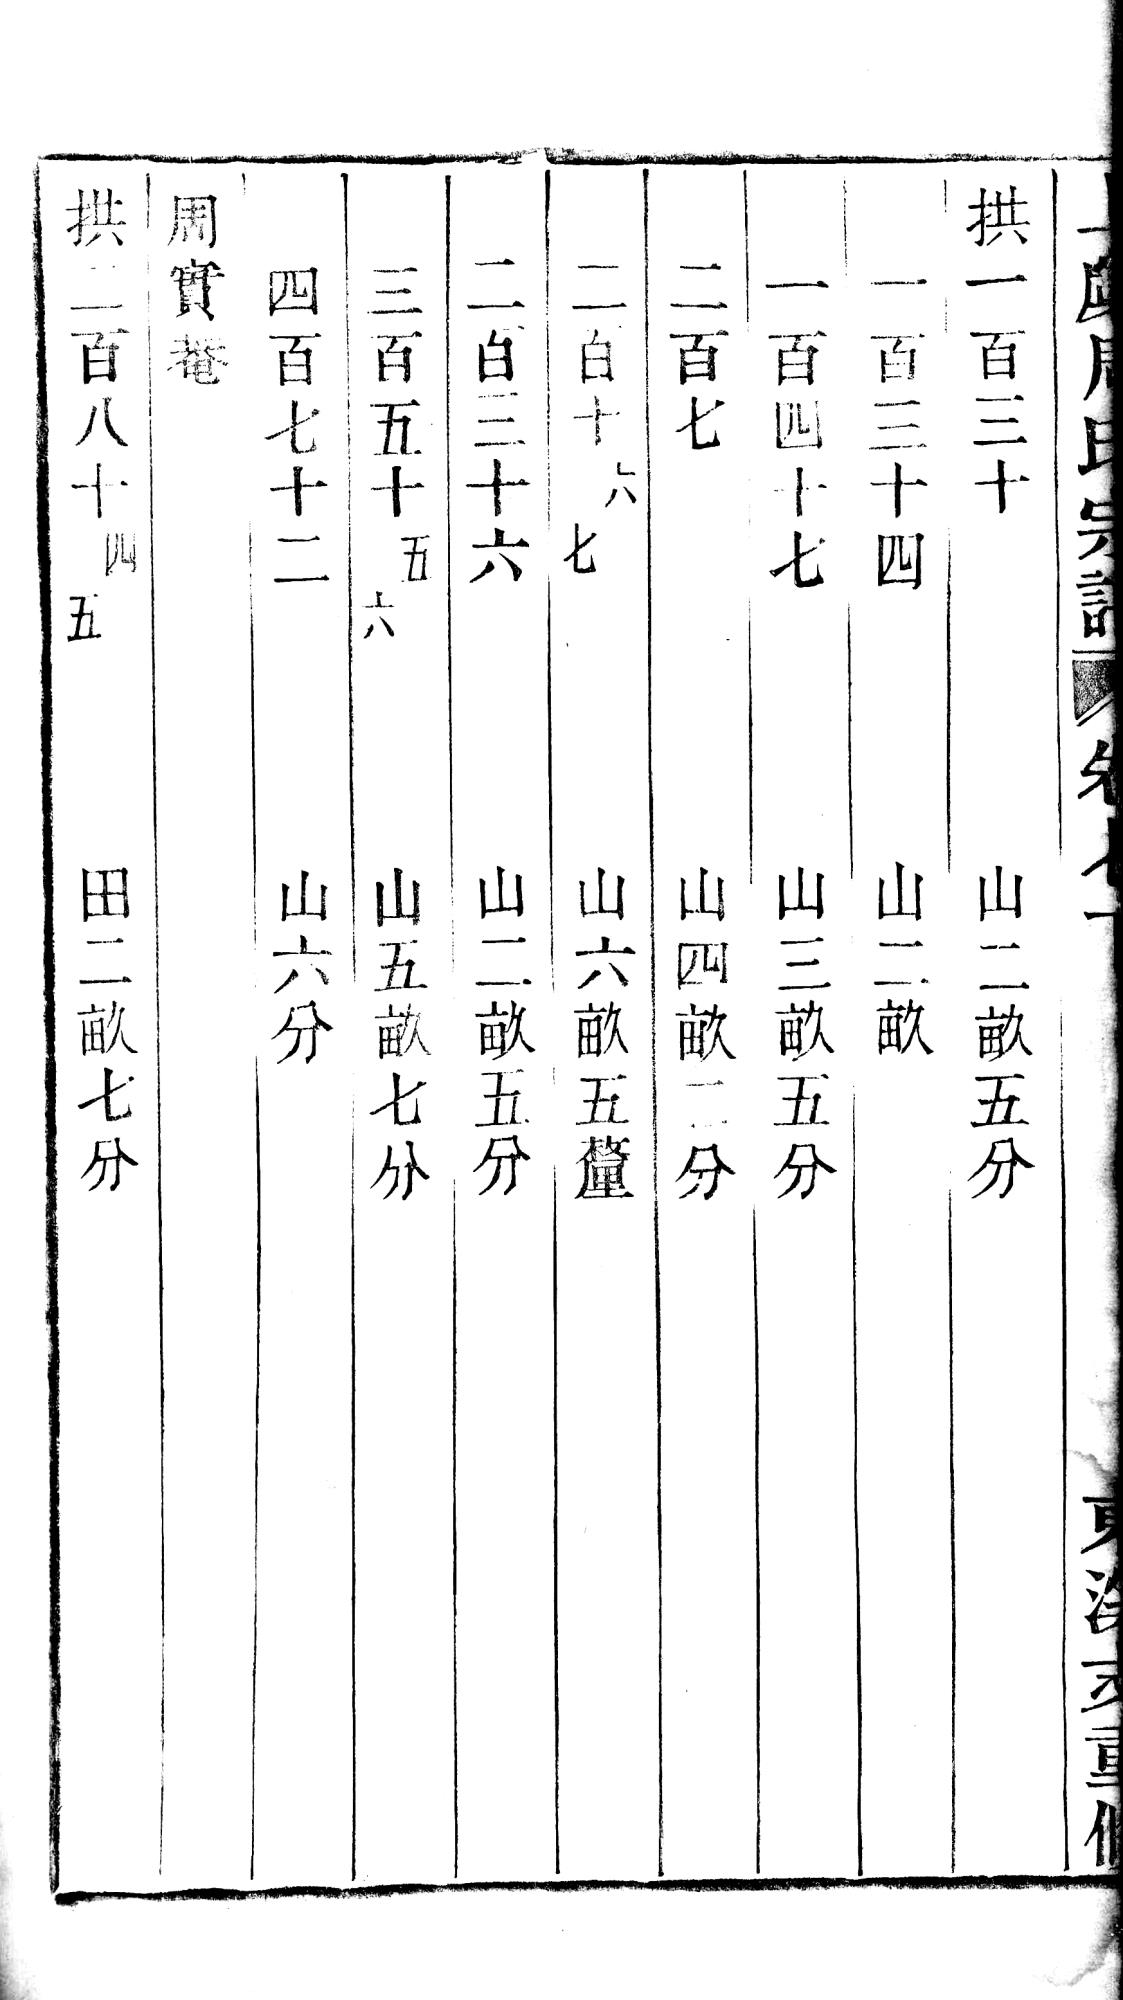 周氏宗譜 卷七
拱一百三十 山二畝五分
一百三十四 山二畝
一百四十七 山三畝五分
二百七 山四畝二分
二百十六七 山六畝五釐
二百三十六 山二畝五分
三百五十五六 山五畝七分
四百七十二 山六分
周實菴
拱二百八十四五 田二畝七分